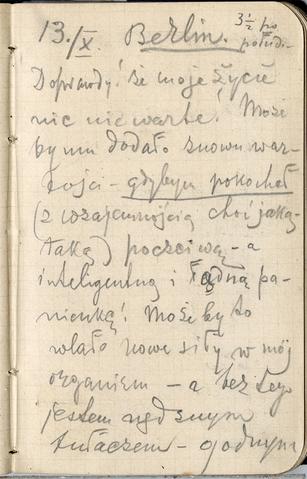 13./X. Berlin. 3½ po połud.
Doprawdy! że moje życie
nic nie warte! Może
by mu dodało znowu war-
tości - gdybym pokochał
(z wzajemnością choć jaką-
taką) poczciwą - a
inteligentną i ładną pa-
nienkę! Może by to
wlało nowe siły w mój
organizm - a bez tego
jestem nędznym
tułaczem - godnym